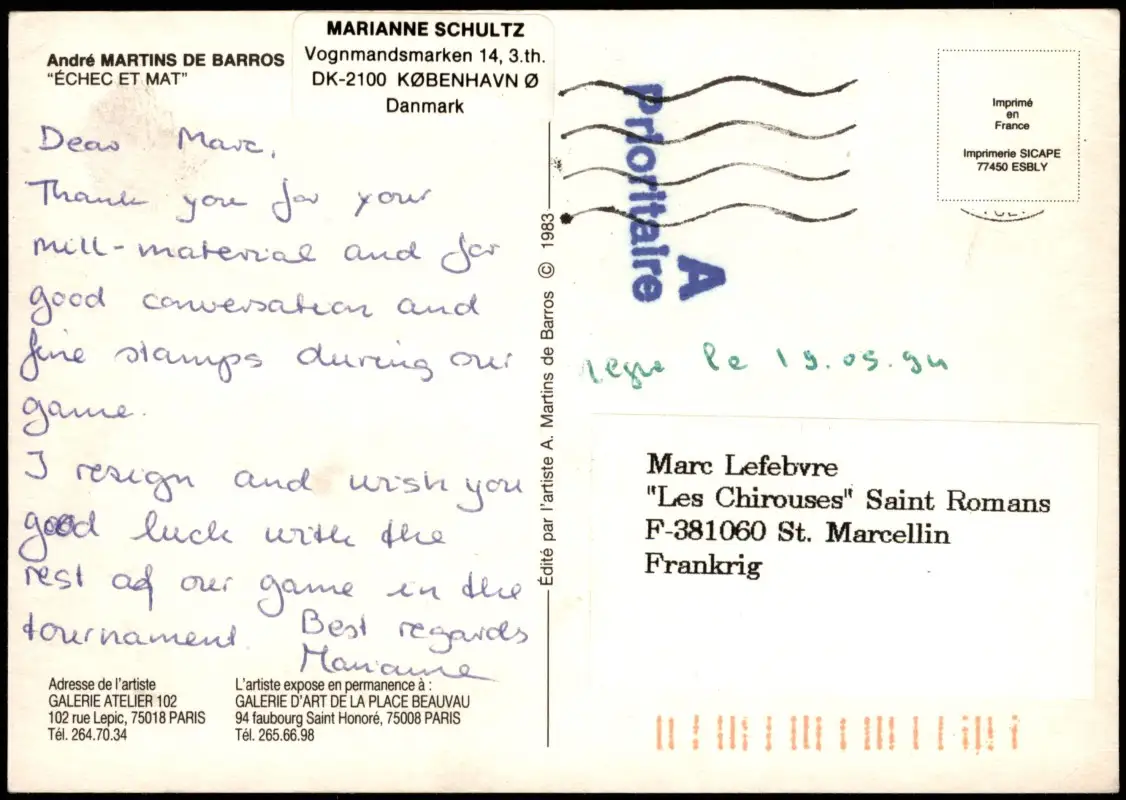 André MARTINS DE BARROS
"ÉCHEC ET MAT"
MARIANNE SCHULTZ
Vognmandsmarken 14, 3.th.
DK-2100 KØBENHAVN Ø
Danmark
Dear Marc,
Thank you for your
mill-material and for
good conversation and
fine stamps during our
game.
I resign and wish you
good luck with the
rest of our game in the
tournament.
Best regards
Marianne
Adresse de l'artiste
GALERIE ATELIER 102
102 rue Lepic, 75018 PARIS
Tél. 264.70.34
L'artiste expose en permanence à :
GALERIE D'ART DE LA PLACE BEAUVAU
94 faubourg Saint Honoré, 75008 PARIS
Tél. 265.66.98
Édité par l'artiste A. Martins de Barros © 1983
A
Prioritaire
Imprimé
en
France
Imprimerie SICAPE
77450 ESBLY
le 19.05.94
Marc Lefebvre
"Les Chirouses" Saint Romans
F-381060 St. Marcellin
Frankrig